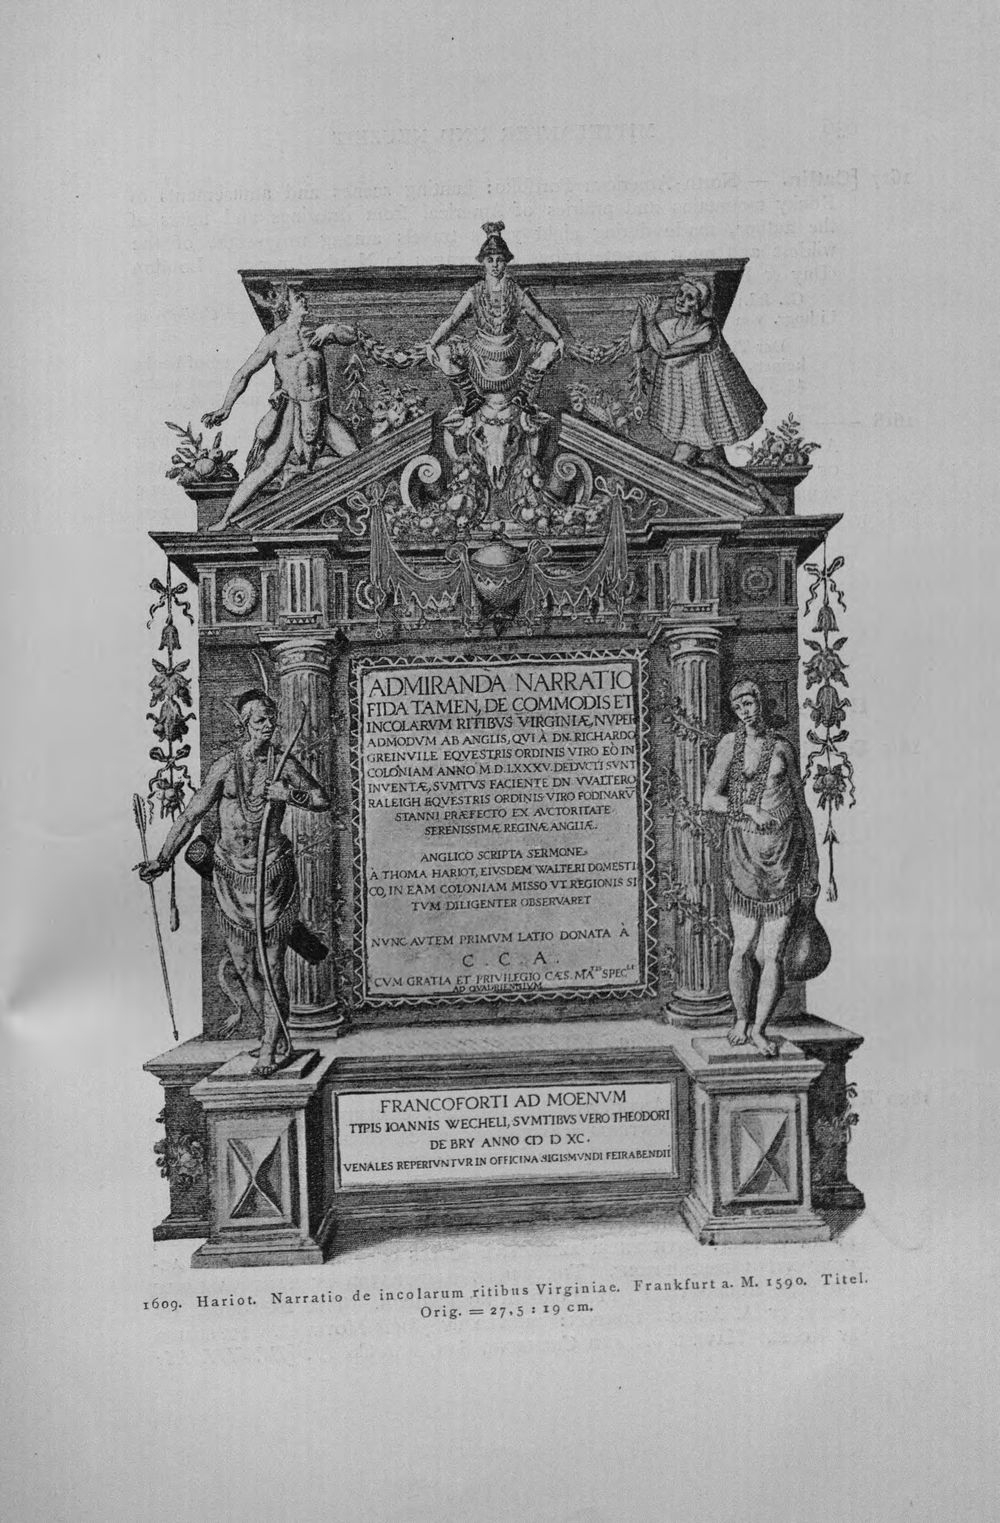 ADMIRANDA NARRATIO
FIDA TAMEN, DE COMMODIS ET
INCOLARVM RITIBVS VIRGINIÆ, NVPER
ADMODVM AB ANGLIS, QVI À DN. RICHARDO
GREINVILE EQVESTRIS ORDINIS VIRO EÒ IN
COLONIAM ANNO M.D.LXXXV. DEDVCTI SVNT
INVENTÆ, SVMTVS FACIENTE DN. VVALTERO
RALEIGH EQVESTRIS ORDINIS VIRO FODINARV̄
STANNI PRÆFECTO EX AVCTORITATE
SERENISSIMÆ REGINÆ ANGLIÆ.
ANGLICO SCRIPTA SERMONE
À THOMA HARIOT, EIVSDEM WALTERI DOMESTI
CO, IN EAM COLONIAM MISSO VT REGIONIS SI
TVM DILIGENTER OBSERVARET
NVNC AVTEM PRIMVM LATIO DONATA À
C . C . A .
CVM GRATIA ET PRIVILEGIO CÆS. MATIS SPECLI
AD QVADRIENNIVM
FRANCOFORTI AD MOENVM
TYPIS IOANNIS WECHELI, SVMTIBVS VERO THEODORI
DE BRY ANNO CIↃ IↃ XC.
VENALES REPERIVNTVR IN OFFICINA SIGISMVNDI FEIRABENDII
1609. Hariot. Narratio de incolarum ritibus Virginiae. Frankfurt a. M. 1590. Titel.
Orig. = 27,5 : 19 cm.